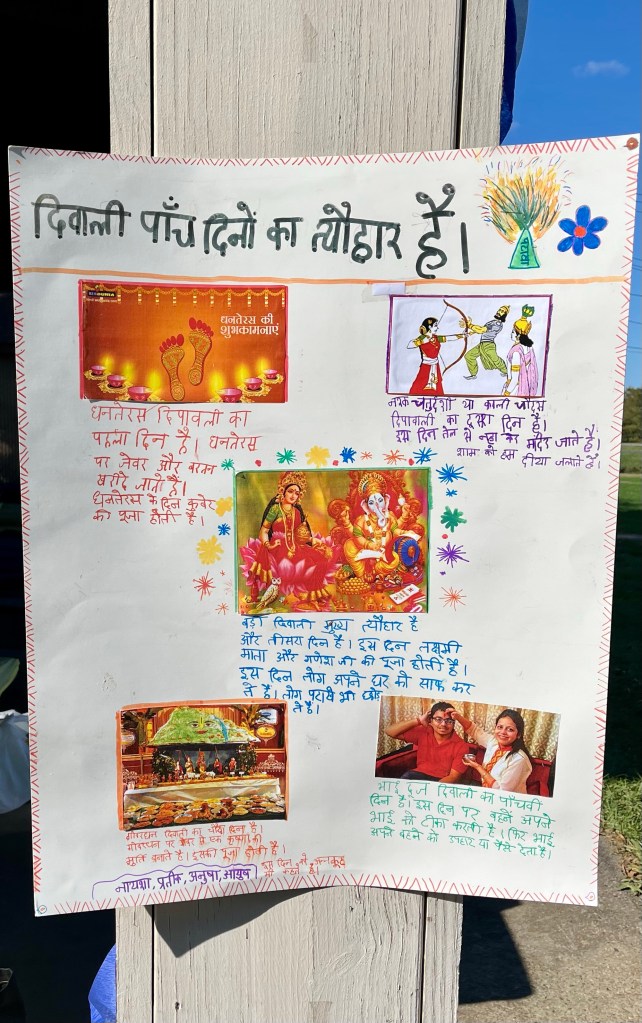 दिवाली पाँच दिनों का त्यौहार है।
पटाखा
धनतेरस की
शुभकामनाएं
धनतेरस दिपावली का
पहला दिन है। धनतेरस
पर जेवर और बरतन
खरीदे जाते है।
धनतेरस के दिन कुबेर
की पूजा होती है।
नरक चतुर्दशी या काली चौदस
दिपावली का दूसरा दिन है।
इस दिन तेल से नहा कर मंदिर जाते है।
शाम को हम दीया जलाते है।
बड़ी दिवाली मुख्य त्यौहार है
और तीसरा दिन है। इस दिन लक्ष्मी
माता और गणेश जी की पूजा होती है।
इस दिन लोग अपने घर को साफ कर
ते है। लोग पटाखे भी छोड़
ते है।
गोवरधन दिवाली का चौथा दिन है।
गोवरधन पर गोबर से एक कृष्णा की
मूर्ति बनाते है। इसकी पूजा होती है।
इस दिन को अन्नकूट
भी कहते है।
भाई दूज दिवाली का पाँचवी
दिन है। इस दिन पर बहने अपने
भाई को टीका करती है। फिर भाई
अपने बहने को उपहार या पैसे देता है।
नायशा, प्रतीक, अनुषा, आयुष